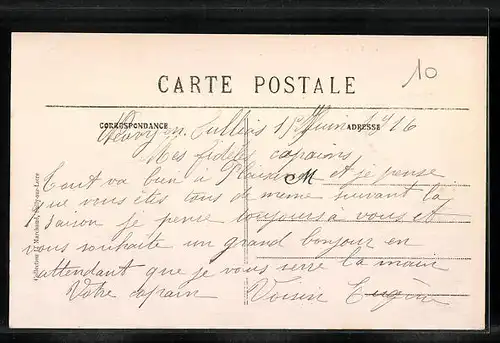 10
CARTE POSTALE
CORRESPONDANCE
ADRESSE
Neuvy en Sullias 15 Juin 1916
Mes fidèles copains
Tout va bien a et je pense
que vous êtes tous de meme suivant la
saison je pense toujours a vous et
vous souhaite un grand bonjour en
attendant que je vous serre la main
Votre copain Voisin Eugène
Collection Marchand, Sully-sur-Loire